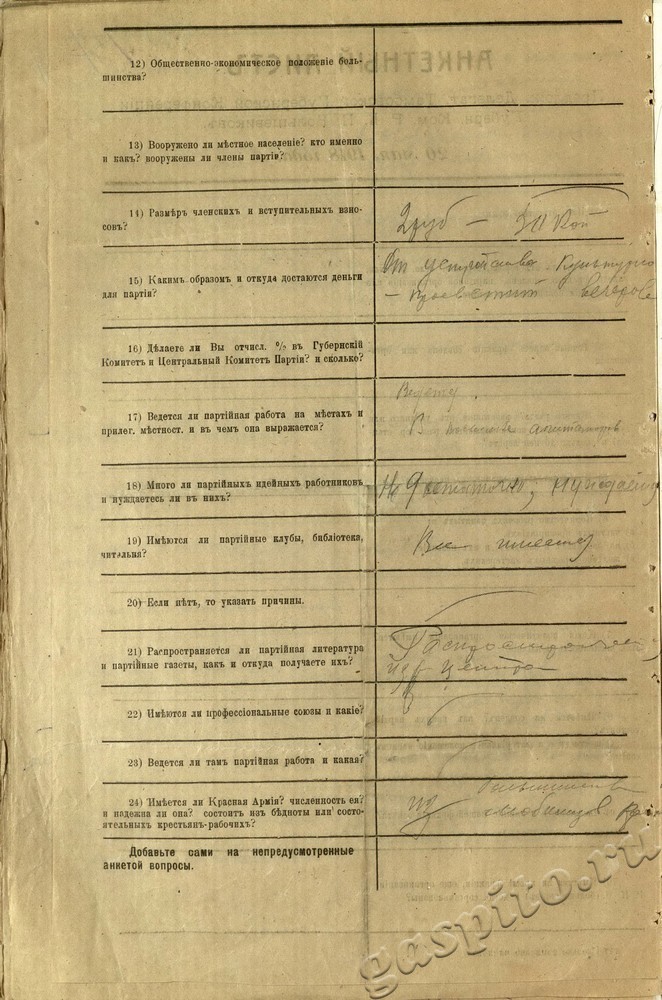 12) Общественно-экономическое положеніе боль-
шинства?
13) Вооружено ли мѣстное населеніе? кто именно
и какъ? вооружены ли члены партіи?
14) Размѣръ членскихъ и вступительныхъ взно-
совъ?
2 руб — 50 коп
15) Какимъ образомъ и откуда достаются деньги
для партіи?
От устройства культурно
— просветит вечеров
16) Дѣлаете ли Вы отчисл. % въ Губернскій
Комитетъ и Центральный Комитетъ Партіи? и сколько?
17) Ведется ли партійная работа на мѣстахъ и
прилег. мѣстност. и въ чемъ она выражается?
Ведется
В
18) Много ли партійныхъ идейныхъ работниковъ
и нуждаетесь ли въ нихъ?
19) Имѣются ли партійные клубы, библіотека,
читальна?
Все имеется
20) Если нѣтъ, то указать причины.
21) Распространяется ли партійная литература
и партійные газеты, какъ и откуда получаете ихъ?
Распространяется
из центра
22) Имѣются ли профессіональные союзы и какіе?
23) Ведется ли тамъ партійная работа и какая?
24) Имѣется ли Красная Армія? численность ея?
и надежна ли она? состоитъ изъ бѣдноты или состо-
ятельныхъ крестьян-рабочихъ?
из
Добавьте сами на непредусмотренные
анкетой вопросы.
gaspito.ru